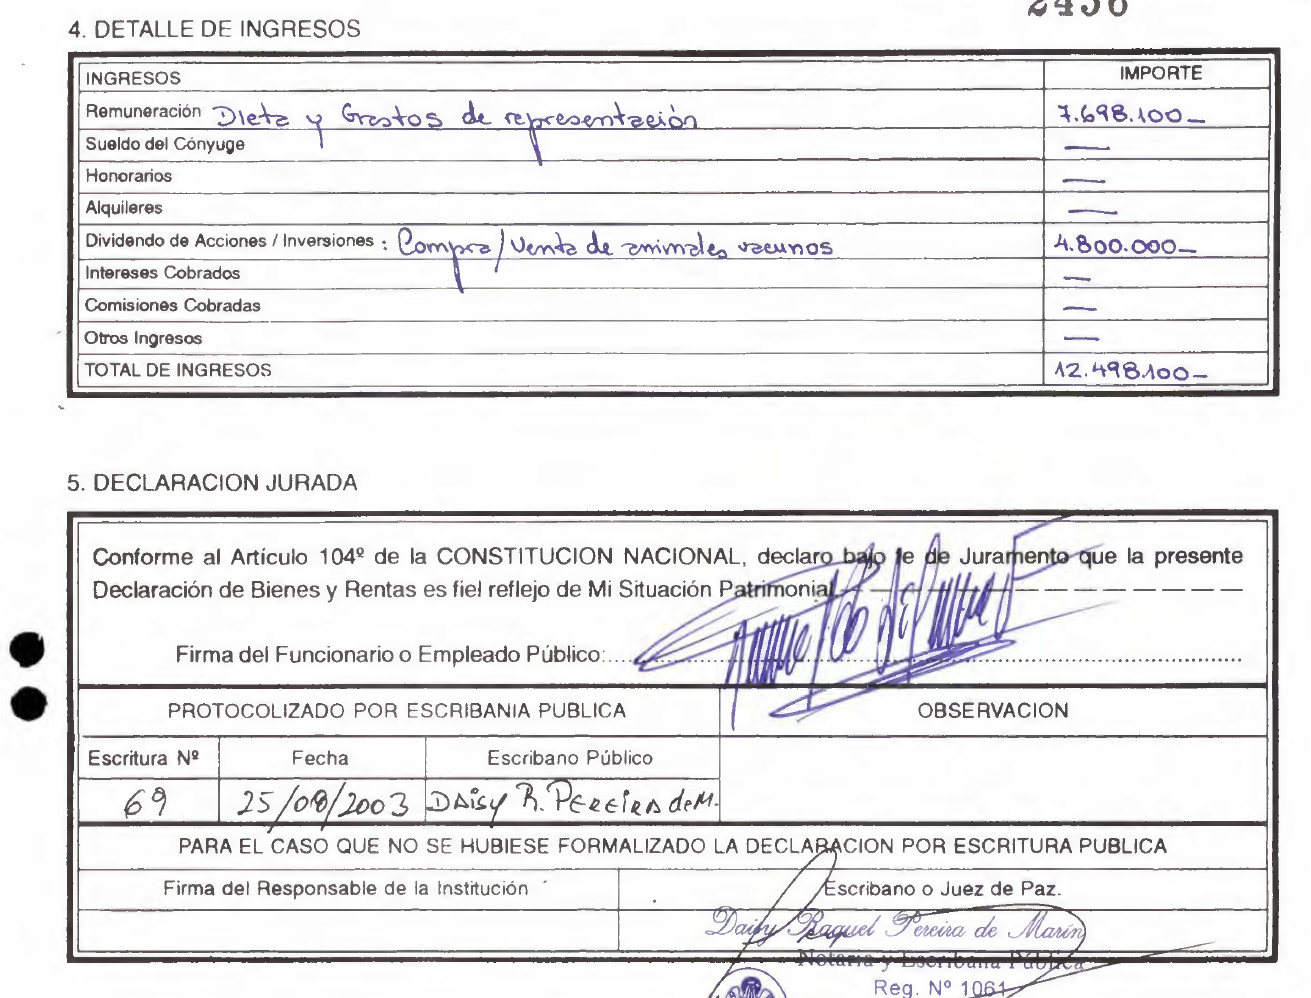 2436
4. DETALLE DE INGRESOS
INGRESOS IMPORTE
Remuneración Dieta y Gastos de representación 7.698.100—
Sueldo del Cónyuge —
Honorarios —
Alquileres —
Dividendo de Acciones / Inversiones : Compra/Venta de animales vacunos 4.800.000—
Intereses Cobrados —
Comisiones Cobradas —
Otros Ingresos —
TOTAL DE INGRESOS 12.498.100—
5. DECLARACION JURADA
Conforme al Artículo 104º de la CONSTITUCION NACIONAL, declaro bajo fe de Juramento que la presente
Declaración de Bienes y Rentas es fiel reflejo de Mi Situación Patrimonial.
Firma del Funcionario o Empleado Público:
PROTOCOLIZADO POR ESCRIBANIA PUBLICA OBSERVACION
Escritura Nº Fecha Escribano Público
69 25/08/2003 DAisy R. PEREIRA de M.
PARA EL CASO QUE NO SE HUBIESE FORMALIZADO LA DECLARACION POR ESCRITURA PUBLICA
Firma del Responsable de la Institución Escribano o Juez de Paz.
Daisy Raquel Pereira de Marin
Notaria y Escribana Pública
Reg. Nº 1061